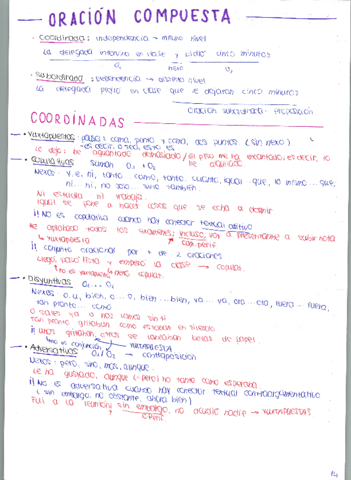 ORACIÓN COMPUESTA
· Coordinada: independencia → mismo nivel
La delegada intervino en clase y pidió cinco minutos
O₁ nexo O₂
· Subordinada: dependencia → distinto nivel
La delegada pidió en clase que le dejaran cinco minutos
oración subordinada - Proposición
COORDINADAS
· Yuxtapuestas: pausa: coma, punto y coma, dos puntos (sin nexo)
es decir, o sea, esto es
Lo dejo: he aguantado demasiado / El piso me ha encantado, es decir, lo
he alquilado
· Copulativas suman O₁ + O₂
Nexos: y, e, ni, tanto como, tanto cuanto, igual que, lo mismo que,
ni... ni, no solo... sino también.
Ni estudia ni trabaja
Igual se pone a hacer cosas que se echa a dormir
¡! No es copulativa cuando hay conector textual aditivo
He aprobado todos los exámenes; incluso, voy a presentarme a subir nota
↳ yuxtapuesta
¡! conjunto oracional por + de 2 oraciones
Llegó, pasó lista y empezó la clase → copulat.
· Disyuntivas O₁ ... O₂
Nexos: o, u, bien, o... o, bien... bien, ya... ya, ora... ora, fuera... fuera,
tan pronto... como
O sales ya o nos vamos sin ti
Tan pronto gritaban como estaban en silencio
¡! Unos gritaban, otros se lanzaban bolas de papel
no es conjunción yuxtapuesta
· Adversativas O₁ / O₂ → contraposición
Nexos: pero, sino, mas, aunque...
Le ha gustado, aunque (= pero) no tanto como esperaba
¡! No es adversativa cuando hay conector textual contraargumentativo
(sin embargo, no obstante, ahora bien)
Fui a la reunión; sin embargo, no acudió nadie → yuxtapuestas